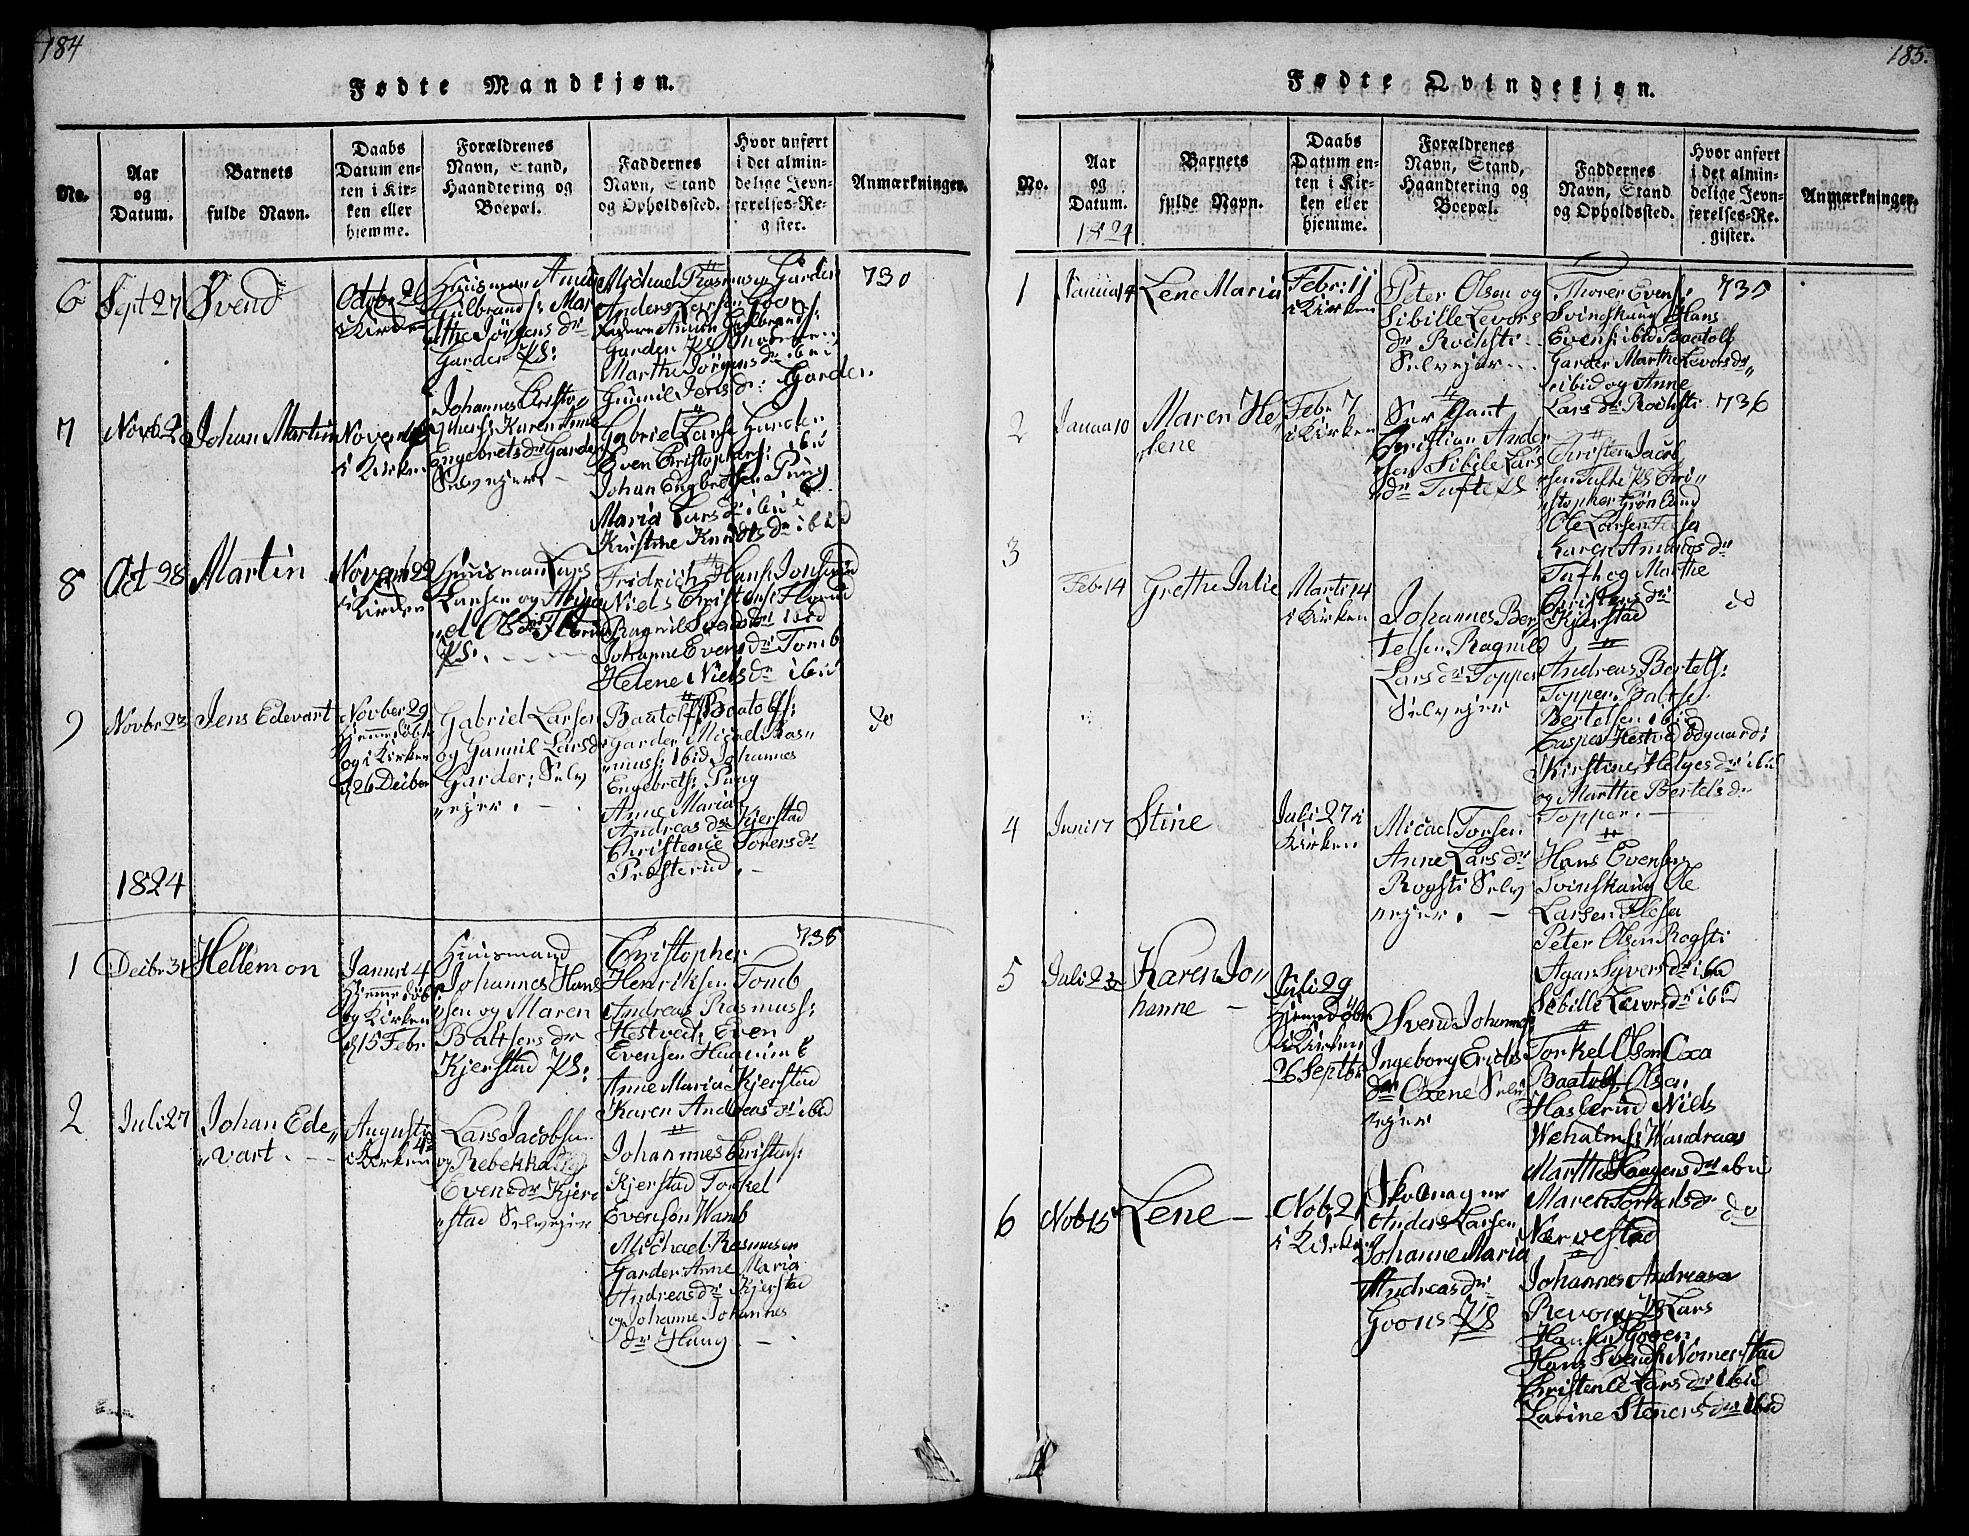 184
Fødte Mandkjøn.
No.
Aar
og
Datum.
Barnets
fulde Navn.
Daabs
Datum en-
ten i Kir-
ken eller
hjemme.
Forældrenes
Navn, Stand,
Haandtering og
Boepæl.
Faddernes
Navn, Stand
og Opholdssted.
Hvor anført
i det almin-
delige Jevn-
førelses-Re-
gister.
Anmærkninger.
6
Sept 27
Svend
Octobr 26
i Kirken
Huusman
Marthe Jörgens dr
Garder
Michael Rasmus Garder
Anders Larsen Goon
Garder
Marthe Jörgens dr ibid
Gunnil Jens dr: Garder
730
7
Novb 2
Johan Martin
Novemb
i Kirken
Johannes Christo
Karen
Engebrets dr Garder
Selvejer
Gabriel Larse Garder
Even Christophers: ibid
Johan Engbretsen Pung
Maria Lars dr ibid
Kirstine Knudts dr ibid
8
Oct 28
Martin
Novemb 22
i Kirken
Huusman Lars
Larsen og
Ols dr
Fridrich Hans:
Niels Christens:
Ragnil Svens dr ibid
Johanne Evens dr Tomb
Helene Niels dr ibid
9
Novbr 23
Jens Edevart
Novber 29
Hjemme döbt
og i Kirken
d 26 Decber
Gabriel Larsen
og Gunnil Lars dr
Garder: Selv
ejer.
Baatolf Baatolfs:
Garder Micael Ras„
„muss: ibid Johannes
Engebrets: Pung
Anne Maria
Andreas dr Kjerstad
Christence Torers dr
Præsterud.
do
1824
1
Decbr 31
Hellemon
Januri 4
Hjemme döbt
og Kirken
d 15 Febr
Huusmand
Johannes Hans
sen og Maren
Baltsers dr
Kjerstad PS:
Christopher
Henriksen Tomb
Andreas Rasmuss:
Hestved Even
Evensen Haavim
Anne Maria Kjerstad
Karen Andreas dr ibid
735
2
Juli 27
Johan Ede„
„vart.
Augusti
i Kirken
Lars Jacobsen
og Rebekka
Evens dr Kjer
„stad Selvejer
Johannes Christens:
Kjerstad Torkel
Evensen Wamb
Michael Rasmusen
Garder Anne Maria
Andreas dr Kjerstad
og Johanne Johannes
dr Haug
185.
Fødte Qvindekjøn.
No.
Aar
og
Datum.
1824
Barnets
fulde Navn.
Daabs
Datum en-
ten i Kir-
ken eller
hjemme.
Forældrenes
Navn, Stand,
Haandtering og
Boepæl.
Faddernes
Navn, Stand
og Opholdssted.
Hvor anført
i det almin-
delige Jevn-
førelses-Re-
gister.
Anmærkninger.
1
Janua 14
Lene Maria
Febr: 11
i Kirken
Peter Olsen og
Sibille Levors
dr Rochsti
Selvejer
Thorer Evens:
Svinskaug Hans
Evens: ibid Baatolf
Garder Marthe Levors dr„
ibid og Anne
Lars dr Rochsti
735
2
Janua 10
Maren He„
lene
Febr 7
i Kirken
Sergant
Christian Ander
sen Sibile Lars
dr Tufte PS
Christen Jacob„
sen Tufte PS Chri„
stopher Grönlund
Ole Larsen
Karen Ambros dr
Tufte og Marthe
Christens dr
Kjerstad
736
3
Feb 14
Grethe Julie
Marti 14
i Kirken
Johannes Ber„
telsen Ragnild
Lars dr Topper
Selvejer
Andreas Bertels:
Topper Balser
Bertelsen ibid
Casper Hestved ödgaard:
Kirstine Helges dr ibid
og Marthe Bertels dr
Topper.
do
4
Juni 17
Stine
Juli 27 i
Kirken
Micael Torsen
Anne Lars dr
Rogsti Selv
„ejer.
Hans Evensen
Svinskaug Ole
Larsen Flesa
Peter Olsen Rogsti
Agar Syvers dr ibid
Sebille Levors dr ibid
5
Juli 23
Karen Jo„
hanne
Juli 29
Hjemmedöbt
i Kirken
26 Septbr
Svend Johannes
Ingeborg Erichs
dr Oxene Selv
„ejer
Torkel Olsen Oxa
Baatolf Olsen
Haslerud Niels
Wehalms: Wandraas
Marthe Haagens dr ibid
Maren Torkels dr
Nærvestad
6
Nobr 15
Lene
Nobr 21
i Kirken
Skolmager
Anders Larsen
Johanne Maria
Andreas dr
Goons PS
Johannes Andreasen
Revong PS Lars
Hansen
Hans Svends: Nomerstad
Christence Lars dr ibid
Larine Steners dr ibid
do